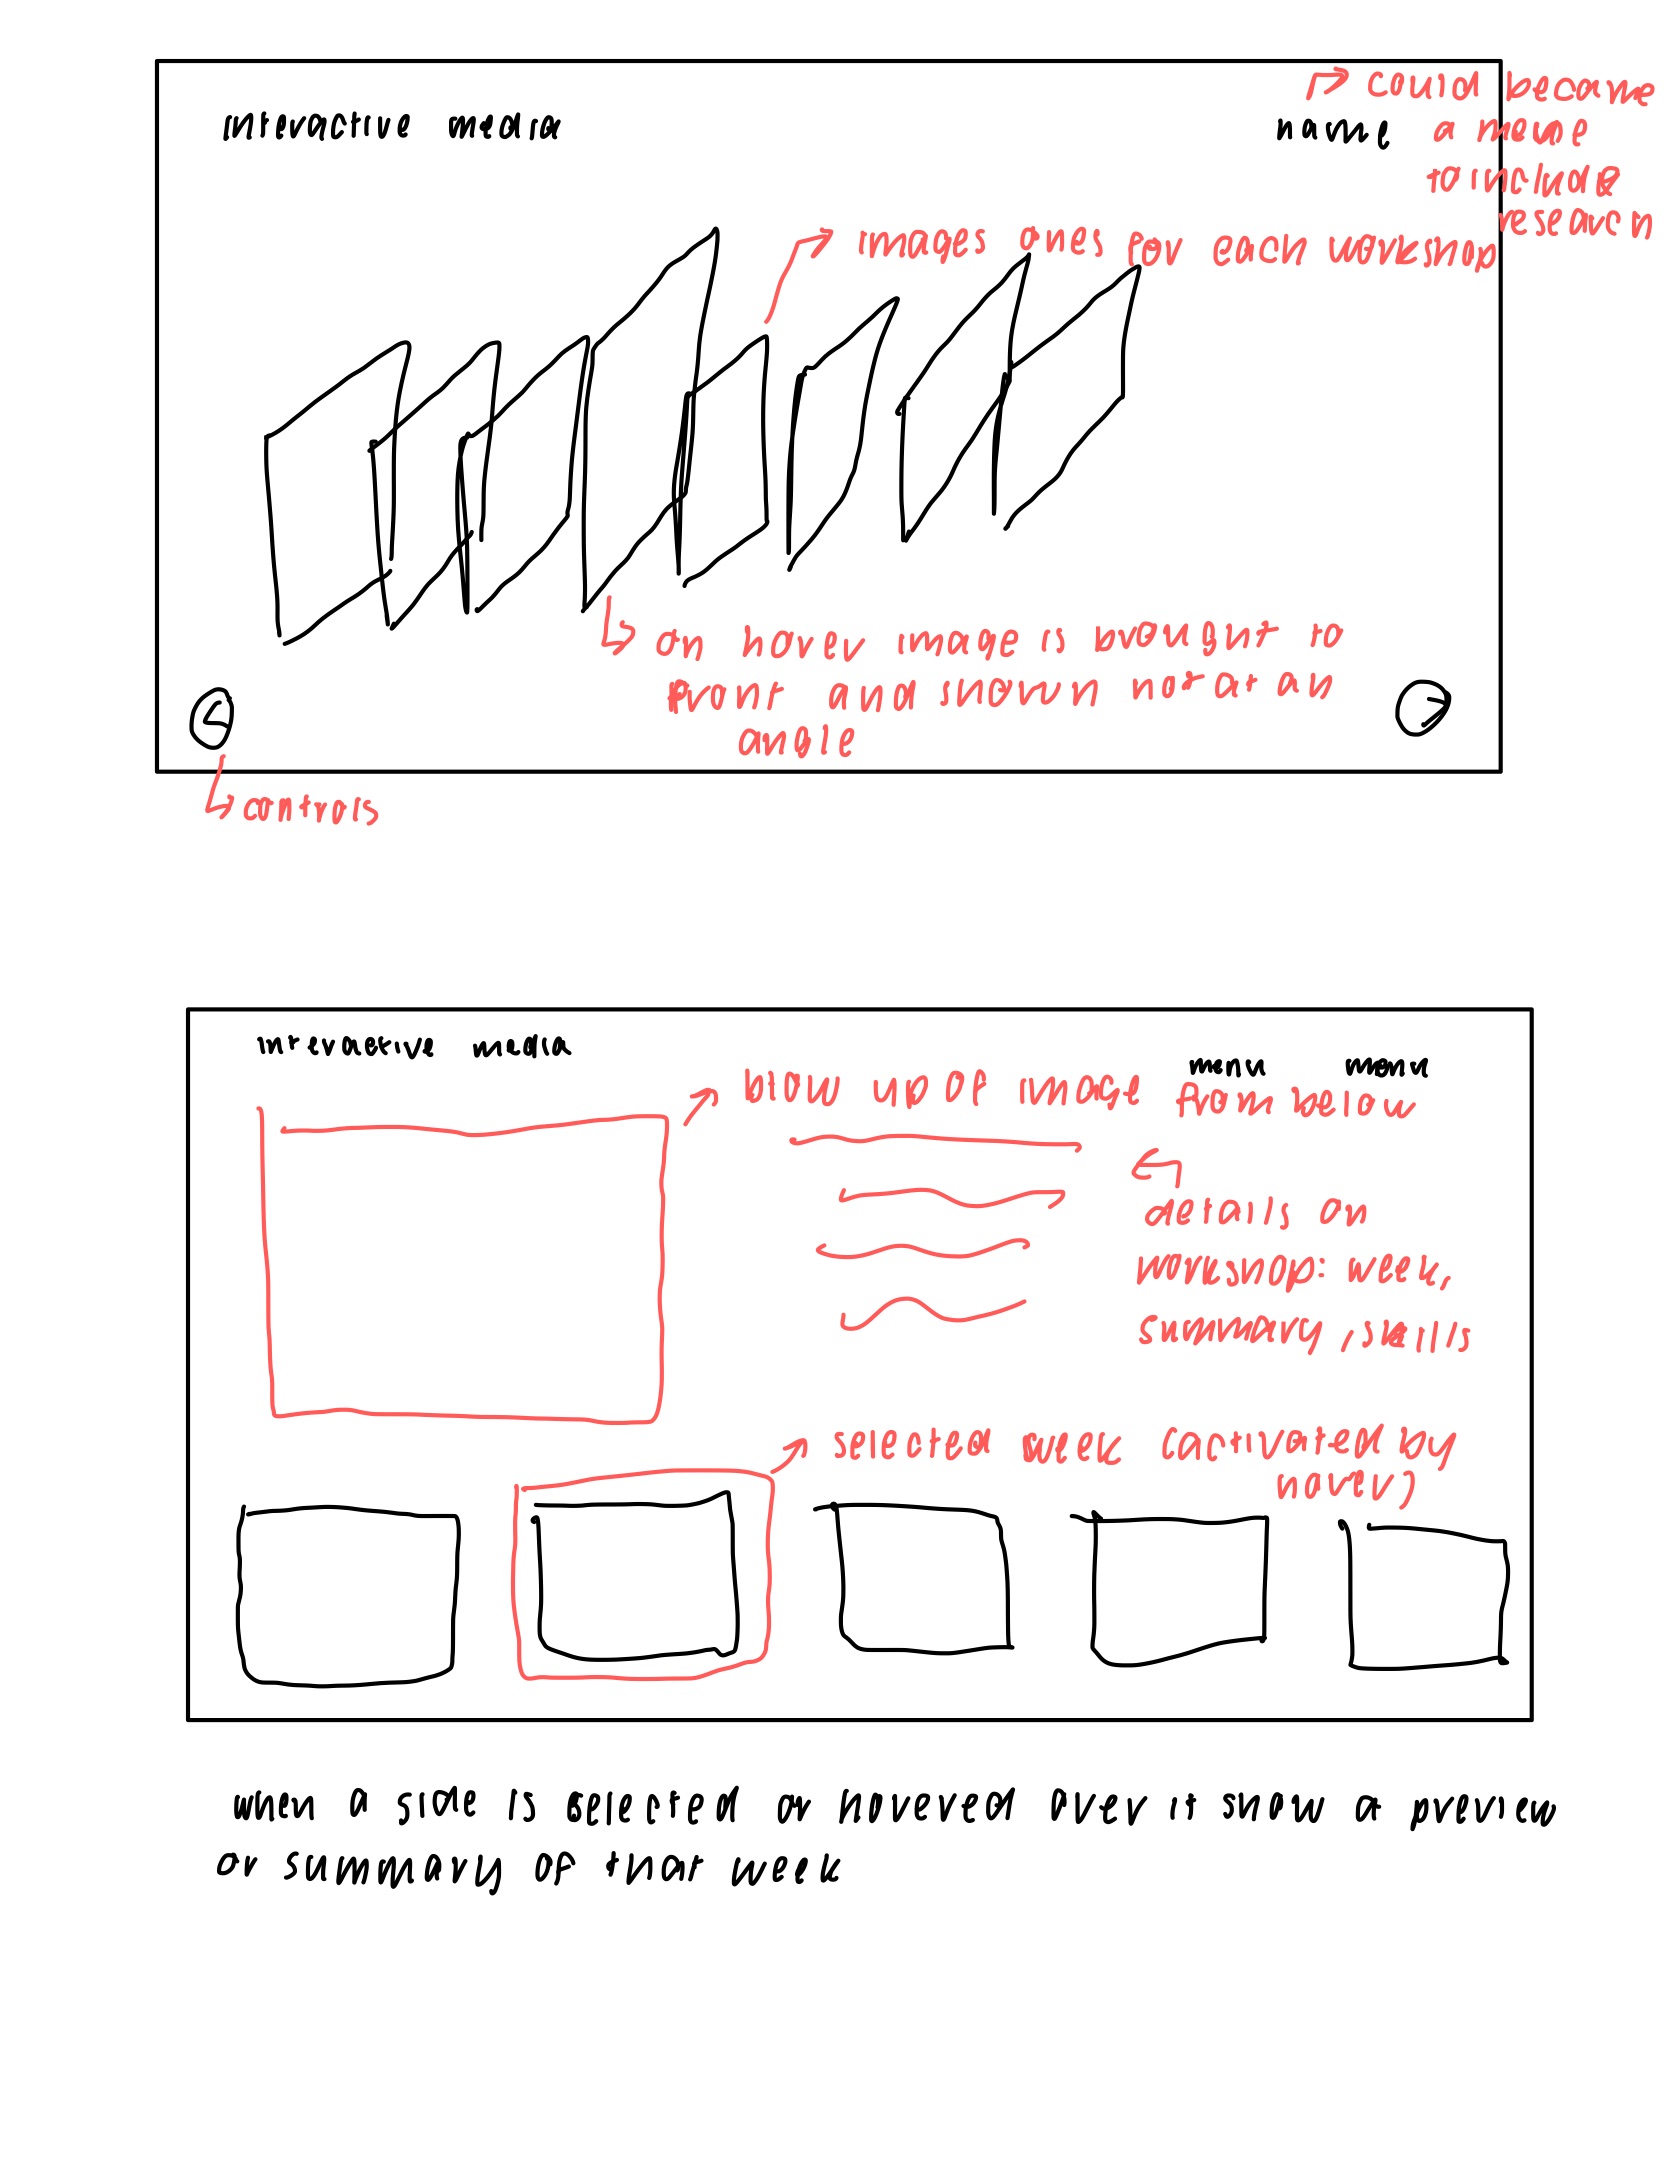 interactive media
name
could become
a menue
to include
research
images ones for each workshop
on hover image is brought to
front and shown not at an
angle
controls
interactive media
menu menu
blow up of image from below
details on
workshop: week,
summary, skills
selected week (activated by
hover)
when a side is selected or hovered over it show a preview
or summary of that week